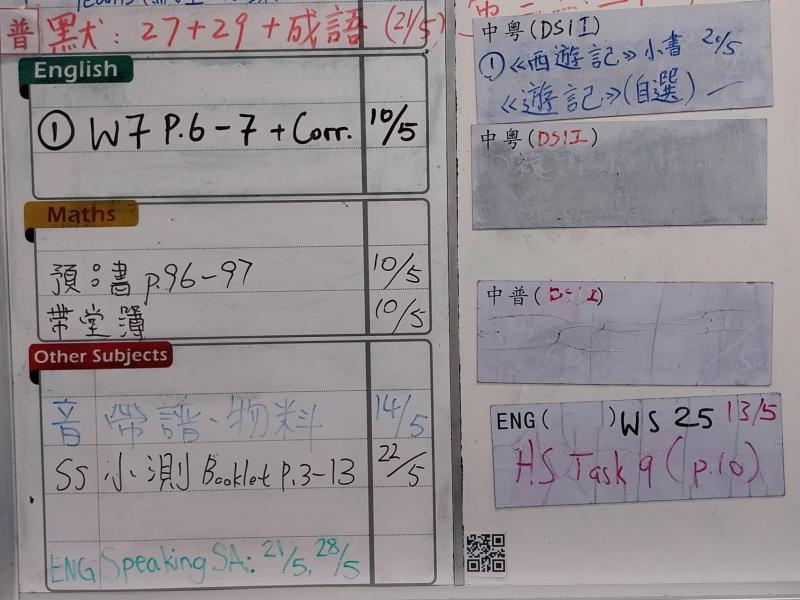 普 默: 27+29+成語 (21/5)
English
① W7 P.6-7 + Corr. 10/5
Maths
預:書 p.96-97 10/5
帶堂簿 10/5
Other Subjects
音 帶譜、物料 14/5
SS 小測 Booklet P.3-13 22/5
ENG Speaking SA: 21/5, 28/5
中粵(DSII)
①《西遊記》小書 20/5
《遊記》(自選)
中粵(DSII)
中普(
ENG( )WS 25 13/5
HS Task 9 (p.10)